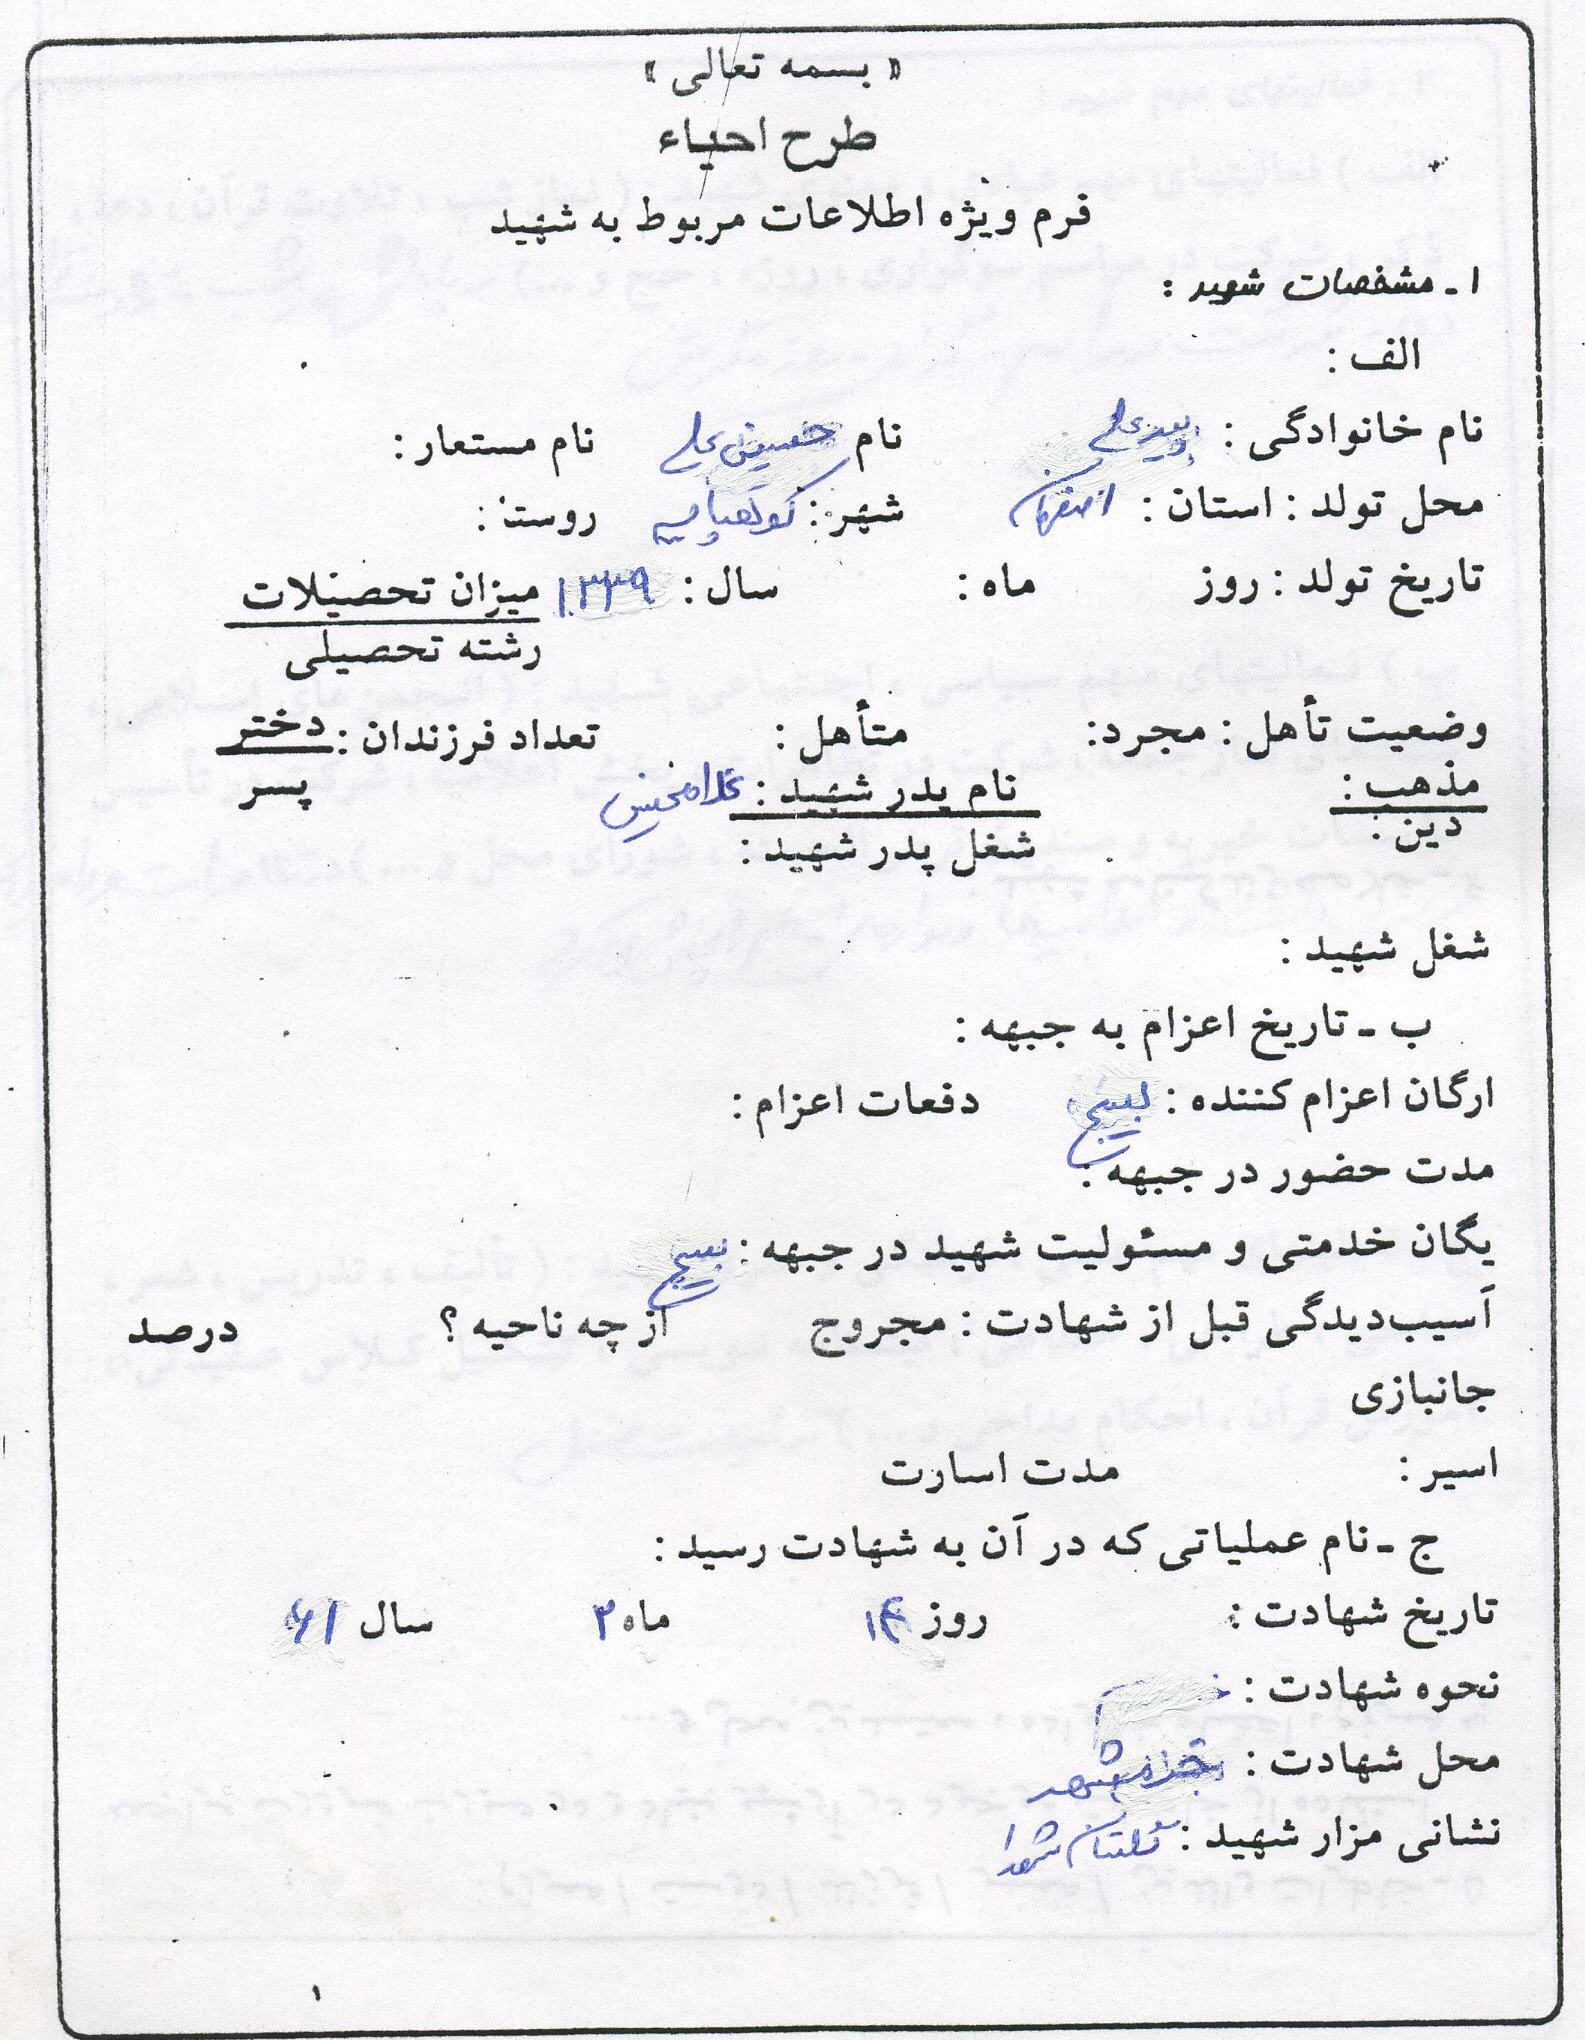 « بسمه تعالی »
طرح احیاء
فرم ویژه اطلاعات مربوط به شهید
۱ـ مشخصات شهید :
الف :
نام خانوادگی : نام حسین علی نام مستعار :
محل تولد : استان : اصفهان شهر : کوهپایه روستا :
تاریخ تولد : روز ماه : سال : ۱۳۳۹ میزان تحصیلات
رشته تحصیلی
وضعیت تأهل : مجرد: متأهل : تعداد فرزندان : دختر
مذهب : نام پدر شهید : غلامحسین پسر
دین : شغل پدر شهید :
شغل شهید :
ب ـ تاریخ اعزام به جبهه :
ارگان اعزام کننده : بسیج دفعات اعزام :
مدت حضور در جبهه :
یگان خدمتی و مسئولیت شهید در جبهه : بسیج
آسیب‌دیدگی قبل از شهادت : مجروح از چه ناحیه ؟ درصد
جانبازی
اسیر : مدت اسارت
ج ـ نام عملیاتی که در آن به شهادت رسید :
تاریخ شهادت : روز ماه ۳ سال ۶۱
نحوه شهادت :
محل شهادت : خرمشهر
نشانی مزار شهید : گلستان شهدا
۱